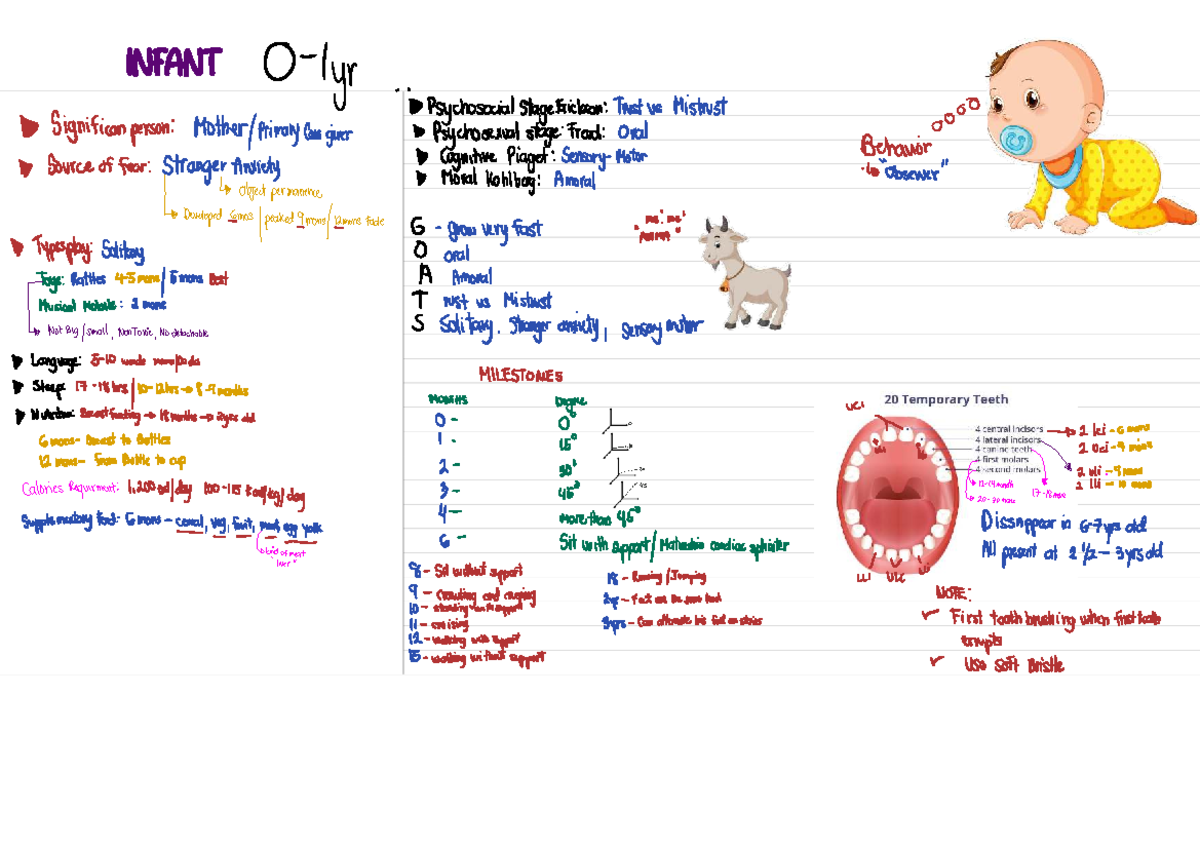 INFANT 0-1yr
Significan person: Mother/Primary Care giver
Source of fear: Stranger Anxiety
Object permanence
Developed 6mons | peaked 9 mons/ 12mons fade
Types play: Solitary
Toys: Rattles 4-5 mons/ 6 mons Best
Musical Mobiles: 2 mons
Not Big/small, Non Toxic, No detachable
Language: 5-10 words mama/dada
Sleep: 17-18 hrs/ 10-12hrs → 8-9 months
Nutrition: Breastfeeding → 18 months → 2yrs old
6 mons- Breast to Bottles
12 mons- From Bottle to cup
Calories Requirment: 1,200 cal/day 100-115 kcal/kg/day
Supplementary food: 6 mons - cereal, veg, fruit, meat egg yolk
kind of meat
"liver"
Psychosocial Stage Erickson: Trust vs Mistrust
Psychosexual stage Freud: Oral
Cognitive Piaget: Sensory-Motor
Moral Kohlberg: Amoral
G - grow very fast
O oral
A Amoral
T rust vs Mistrust
S Solitary, Stranger anxiety, Sensory motor
"me! me!
Behavior
"Observer"
MILESTONES
MONTHS Degree
0 - 0°
1 - 15°
2 - 30°
3 - 45°
4 - More than 45°
6 - Sit with support/ cardiac sphincter
8 - Sit without support
9 - Crawling and creeping
10 - standing with support
11 - cruising
12 - walking with support
15 - walking without support
18 - Running/Jumping
2yr - Feet on the same
3yrs - Can alternate his feet on stairs
20 Temporary Teeth
UCI
4 central incisors → 2 lci - 6 mons
4 lateral incisors 2 uci - 9 mons
4 canine teeth
4 first molars 2 uli - 9 mons
4 second molars 2 lli - 10 mons
12-14 month
20-30 mons
17-18 mons
LLI
Dissappear in 6-7 yrs old
All present at 2 1/2 - 3 yrs old
NOTE:
First tooth brushing when first tooth
erupts
Use Soft Bristle